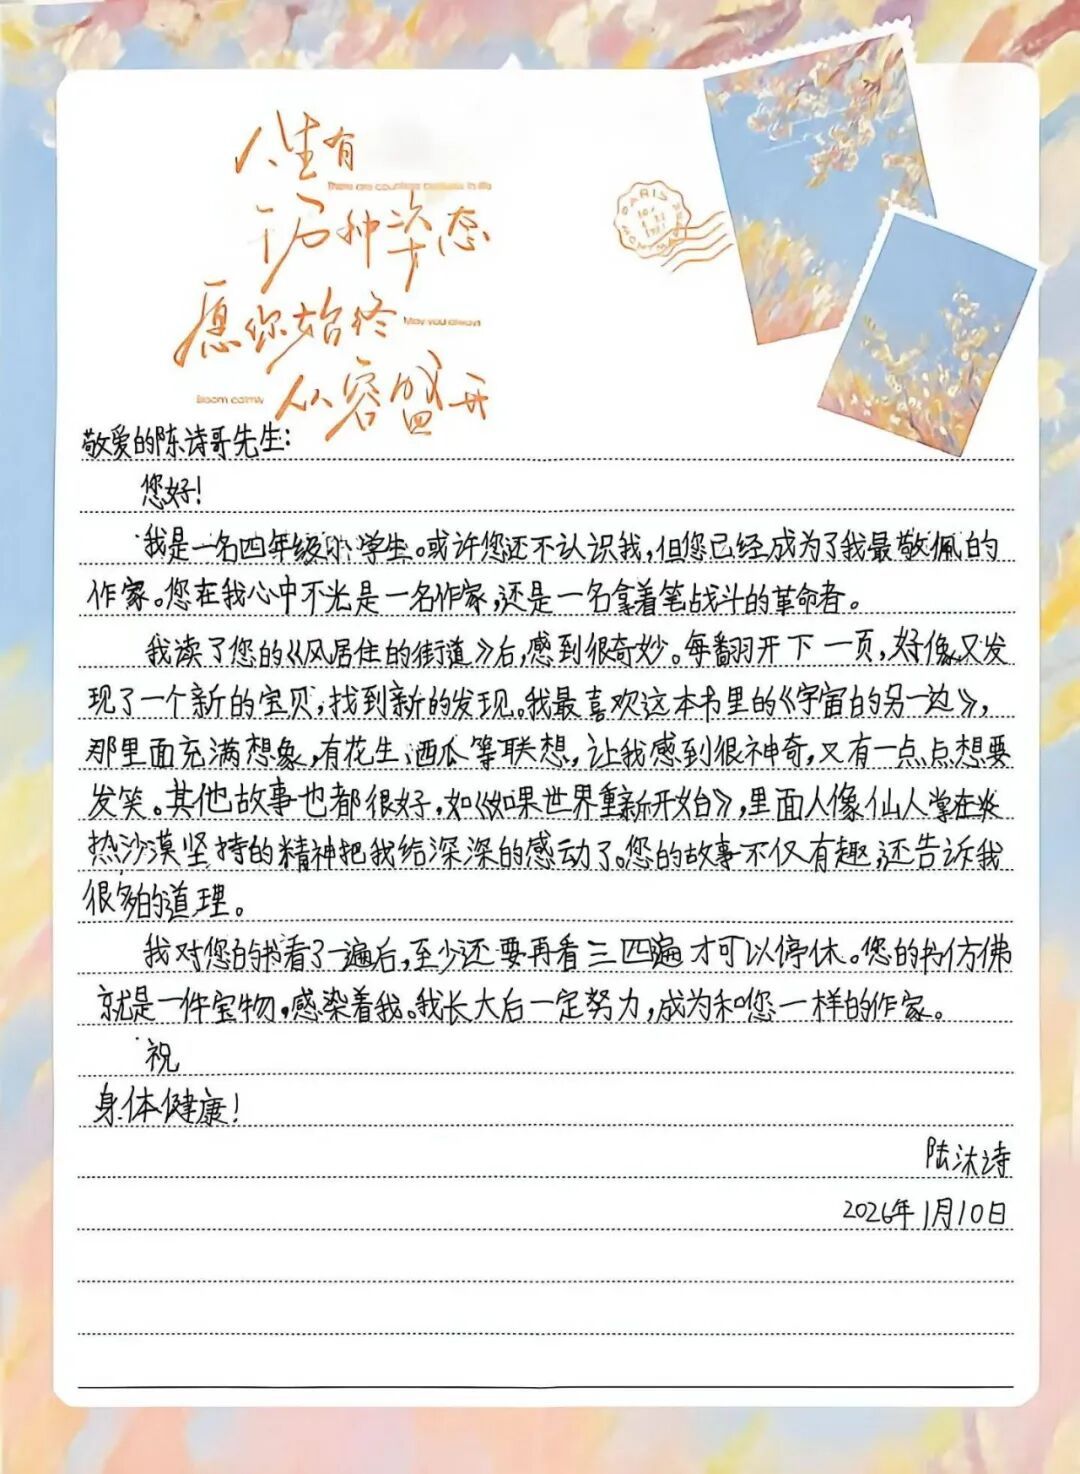 人生有
There are countless postures in life
千万种姿态
愿你始终
May you always
从容盛开
Bloom calmly
PARIS
敬爱的陈诗哥先生：
您好！
我是一名四年级小学生。或许您还不认识我，但您已经成为了我最敬佩的
作家。您在我心中不光是一名作家，还是一名拿着笔战斗的革命者。
我读了您的《风居住的街道》后，感到很奇妙。每翻开下一页，好像又发
现了一个新的宝贝，找到新的发现。我最喜欢这本书里的《宇宙的另一边》，
那里面充满想象，有花生、西瓜等联想，让我感到很神奇，又有一点点想要
发笑。其他故事也都很好，如《如果世界重新开始》，里面人像仙人掌在炎
热沙漠坚持的精神把我给深深的感动了。您的故事不仅有趣，还告诉我
很多的道理。
我对您的书看了一遍后，至少还要再看三四遍才可以停休。您的书仿佛
就是一件宝物，感染着我。我长大后一定努力，成为和您一样的作家。
祝
身体健康！
陆沐诗
2026年1月10日